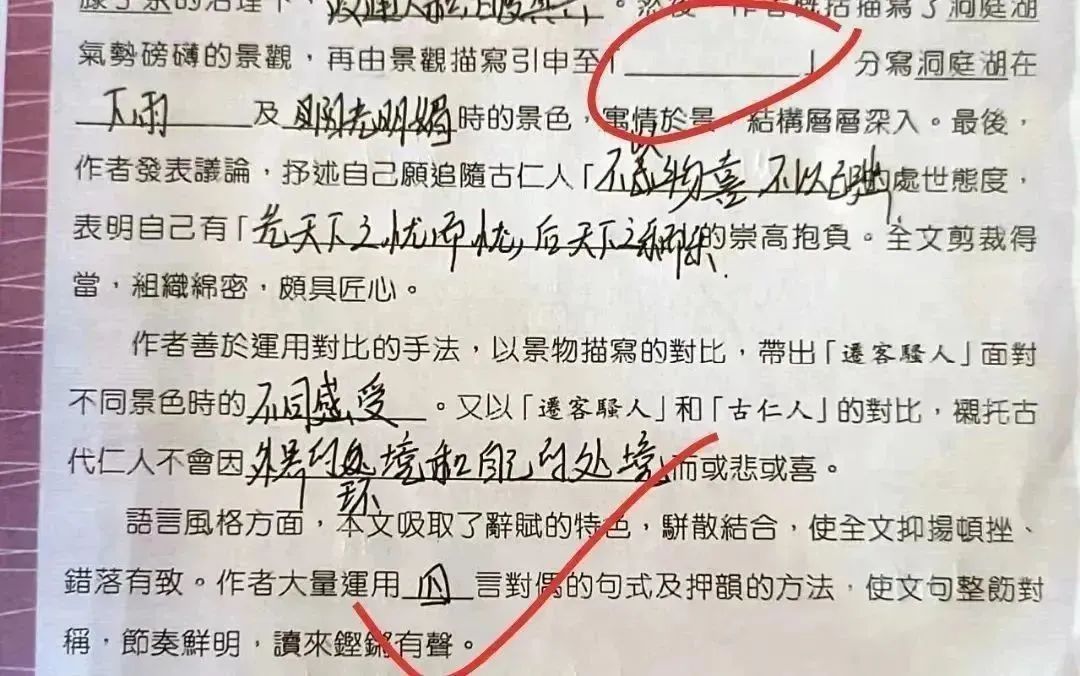 滕子京的治理下，政通人和，百廢具興。然後，作者概括描寫了洞庭湖
氣勢磅礴的景觀，再由景觀描寫引申至「＿＿＿＿＿＿」，分寫洞庭湖在
下雨 及 陽光明媚 時的景色，寓情於景，結構層層深入。最後，
作者發表議論，抒述自己願追隨古仁人「不以物喜 不以己悲」的處世態度，
表明自己有「先天下之忧而忧，后天下之乐而乐」的崇高抱負。全文剪裁得
當，組織綿密，頗具匠心。
作者善於運用對比的手法，以景物描寫的對比，帶出「遷客騷人」面對
不同景色時的 不同感受 。又以「遷客騷人」和「古仁人」的對比，襯托古
代仁人不會因 外界的环境和自己的处境 而或悲或喜。
語言風格方面，本文吸取了辭賦的特色，駢散結合，使全文抑揚頓挫、
錯落有致。作者大量運用 四 言對偶的句式及押韻的方法，使文句整飭對
稱，節奏鮮明，讀來鏗鏘有聲。